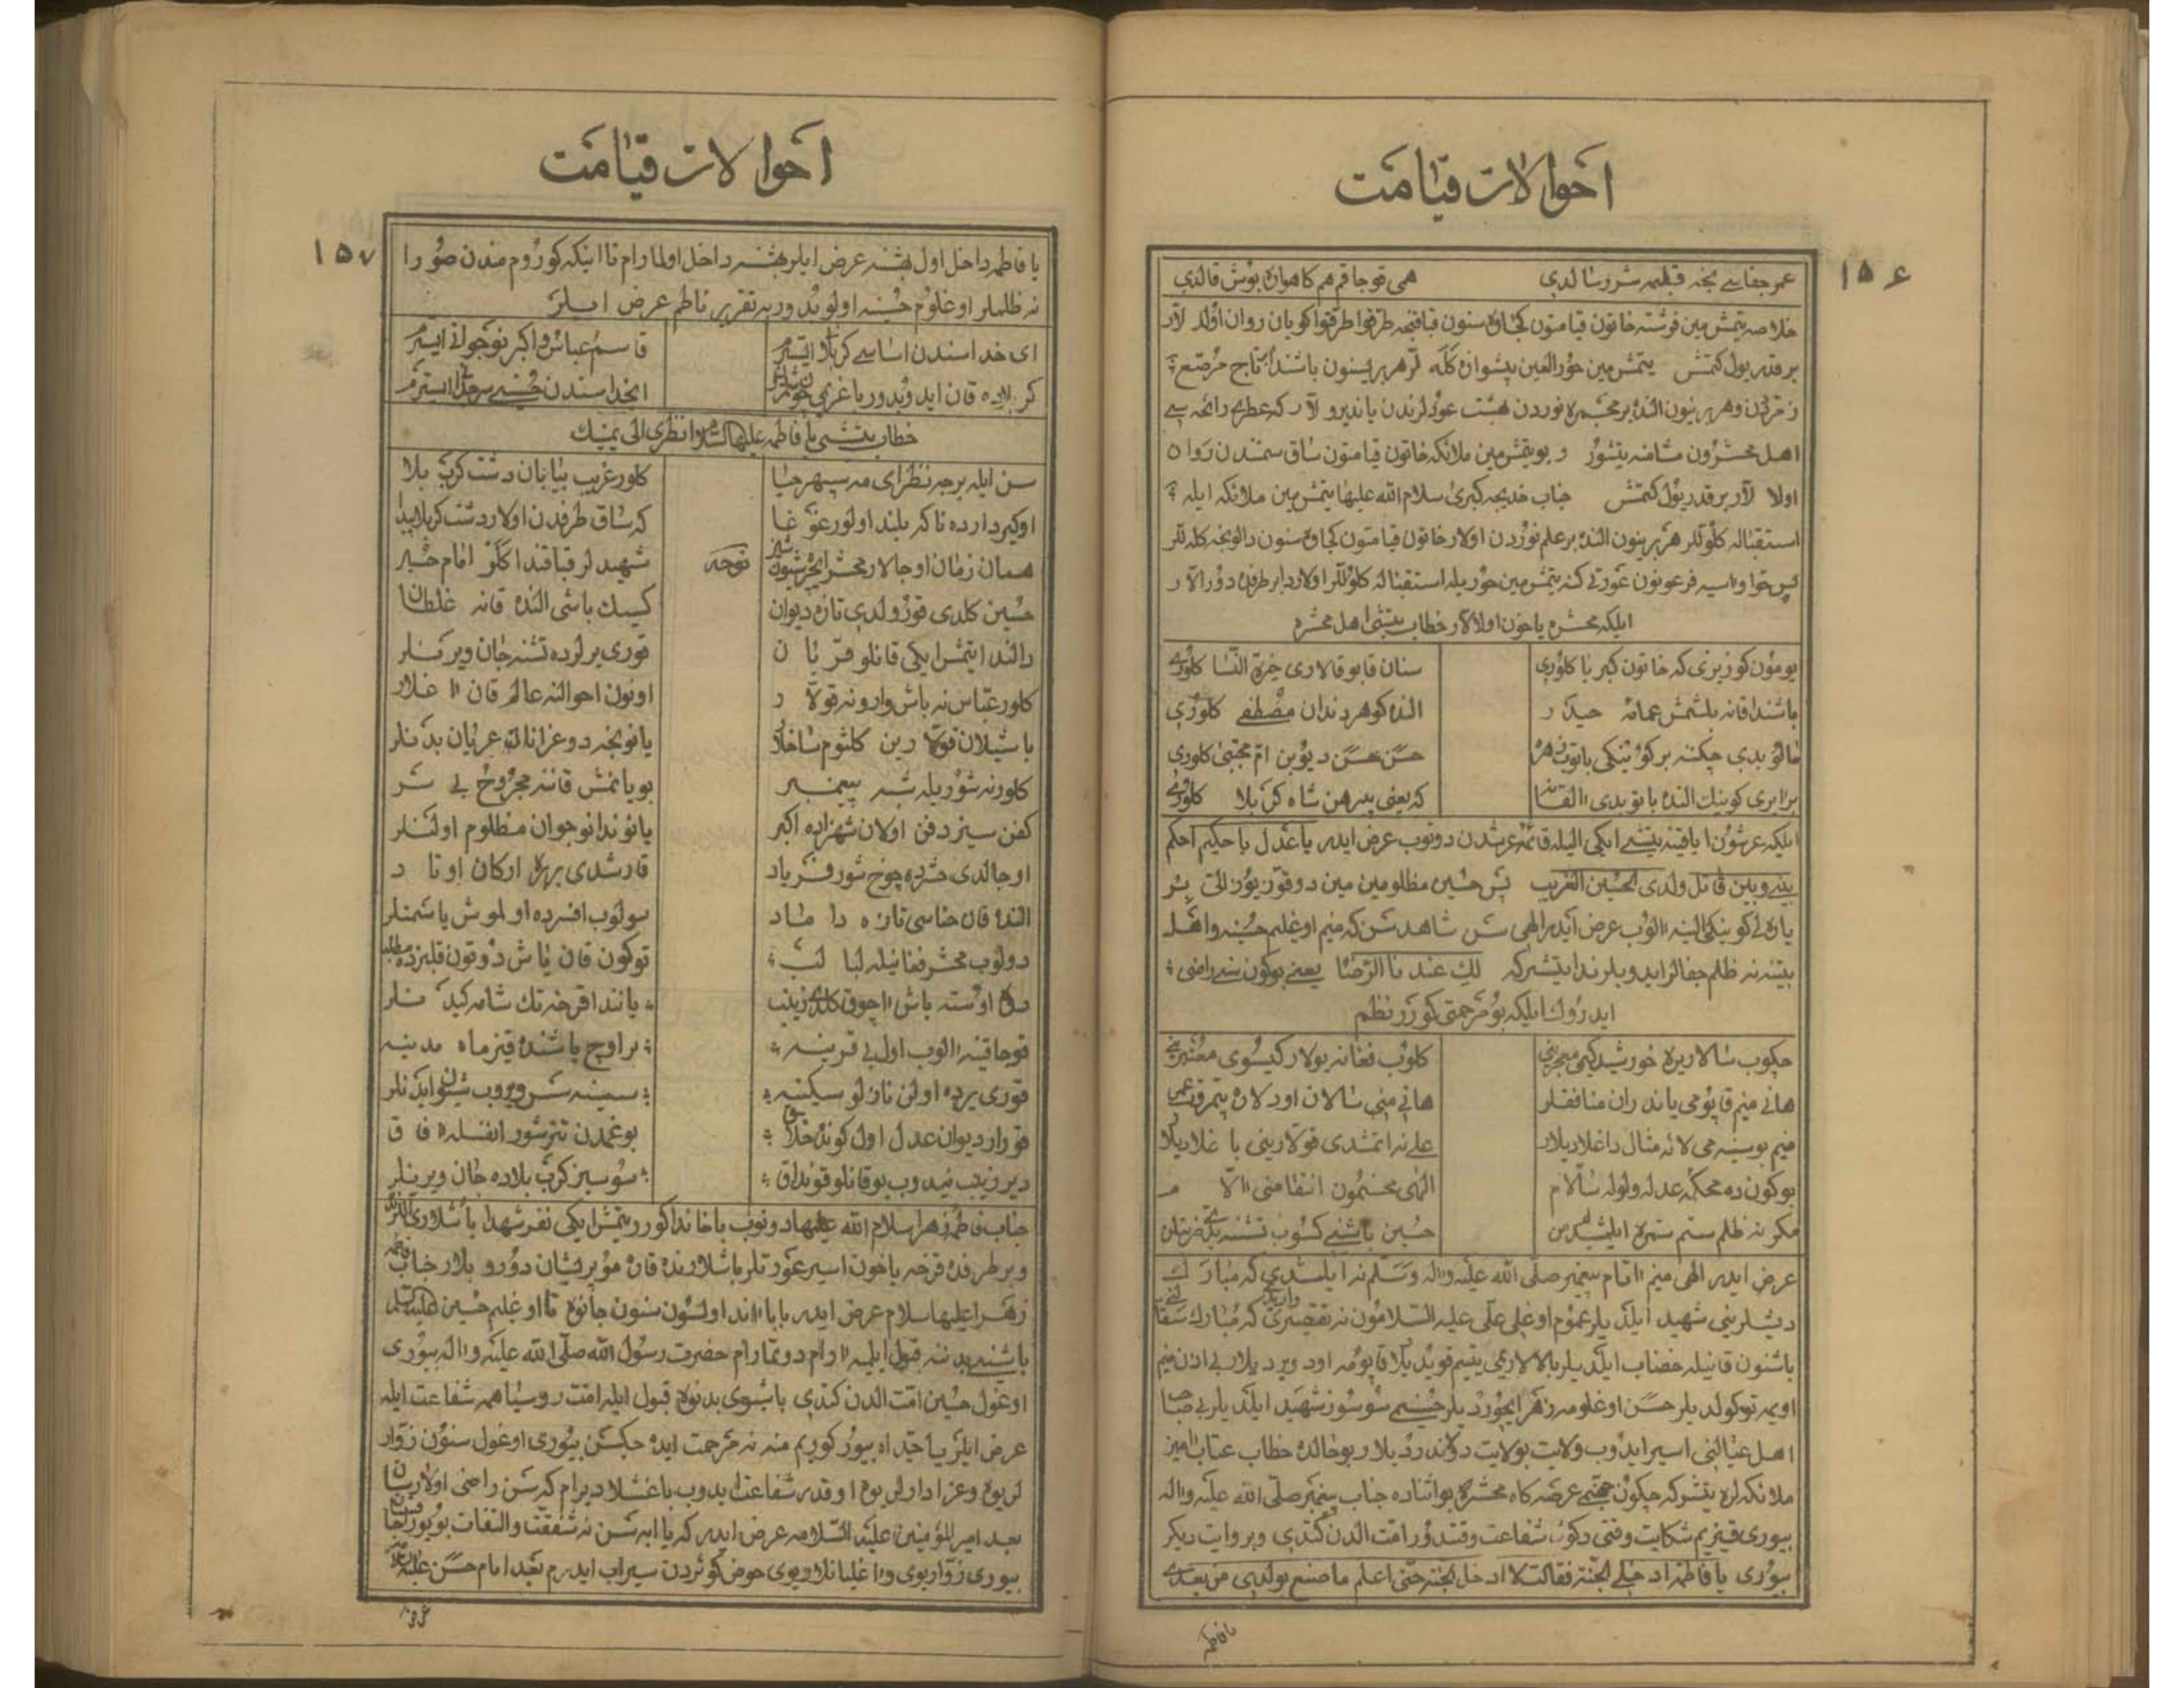 احوالات قیامت
۱۵۶
عمر جفاسی نجه قبلیمه شرر سالدی هی قوجاقم هم کاهوان بوش قالدی
خلاصه یتمش مین فرشته خاتون قیامتون کجاوه سنون قباقنجه طرقوا طرقوا کویان روان اولالار
بر قدر یول کتمش یتمش مین حور العین پیشوازه کله لر هر برینون باشندا بر تاج مرصع
زمرددن و هر برینون النده بر مجمره نوردن بهشت عودلرندن یاندیرولار که عطری رائحه سی
اهل محشرون مشامنه یتشور و بو یتمش مین ملائکه خاتون قیامتون ساق سمتندن روان
اولالار بر قدر یول کتمش جناب خدیجه کبری سلام الله علیها یتمش مین ملائکه ایله
استقباله کلوللر هر برینون النده بر علم نوردن اولار خاتون قیامتون کجاوه سنون دالونجه کله للر
پس حوا و اسیه فرعونون عورتی کنه یتمش مین حوریله استقباله کلوللر اولاردا بر طرفده دورالار
ایلیکه محشره یاخون اولالار خطاب یتیشی اهل محشره
یومون کوزیزی که خاتون کبریا کلوری سنان قابوقالاری خیرة النسا کلوری
باشندا قانه بلشمش عمامه حیدر النده کوهر دندان مصطفی کلوری
حسن حسن دیوبن ام مجتبی کلوری
که یعنی پیرهن شاه کربلا کلوری
ایلیکه عرشون ایاقینه یتیشی ایکی الیله قائمه عرشدن دوتوب عرض ایدر یا عدل یا حکیم احکم
بینی و بین قاتل ولدی الحسین الغریب پس حسین مظلومین مین دوقوز یوز اللی بر
یاره لی کوینکی الینه الوب عرض ایدر الهی سن شاهدسن که منیم اوغلیم حسینه و اهل
بیتنه نه ظلم جفالر ایدوبلر ندا یتیشر که لک عندنا الرضا یعنی بوکون سنی راضی
ایدروک ایلیکه بو مرحمتی کورر نظم
چکوب سالار یره خورشید کیمی معجرینی کلوب فغانه یولار کیسوی معنبرینی
هانی منیم قاپومی یاندران منافقلر هانی منی سالان اودلاره
منیم بو سینه می لاله مثال داغلادیلار علی نه اتمشدی قولارینی باغلادیلار
بوکون ده محکمه عدله ولوله سالام الهی محسنمون انتقامنی الام
مکر نه ظلم ستم شمره ایلمشیدیم من حسین باشنی کسوب تشنه
عرض ایدر الهی منیم اتام پیغمبر صلی الله علیه واله وسلم نه ایلمشدی که مبارک
دیشلرینی شهید ایلدیلر عموم اوغلی علی علیه السلامون نه تقصیری واریدی که مبارک
باشنون قانیله خضاب ایلدیلر بالالارمی یتیم قویدیلار قاپومه اود ویردیلار بی اذن منیم
اویمه توکولدیلر حسن اوغلومه زهر ایچوردیلر حسینمی سوسوز شهید ایلدیلر بی صاحب
اهل عیالنی اسیر ایدوب ولایت بولایت دولاندردیلار بو حالده خطاب عتاب امیز
ملائکه لره یتشر که چکون جهنمی عرصه کاه محشره بو اثناده جناب پیغمبر صلی الله علیه واله
بیوری قیزیم شکایت وقتی دکول شفاعت وقتدور امت الدن کتدی و بروایت دیکر
بیوری یا فاطمة ادخلی الجنة فقالت لا ادخل الجنة حتی اعلم ما صنع بولدی من بعدی
یا فاطمه
احوالات قیامت
۱۵۷
یا فاطمه داخل اول بهشته عرض ایلر بهشته داخل اولمارام تا اینکه کوروم مندن صورا
نه ظلملر اوغلوم حسینه اولوبدور به تقریر ناظم عرض ایلر
ای خدا سندن اساسی کربلا ایسترم قاسم عباس و اکبر نوجوانی ایسترم
کربلاده قان ایدوبدور باغریمی ایخدا سندن حسینی سرجدا ایسترم
خطاب یتیشی یا فاطمه علیها السلام وانظری الی یمینک
سن ایله بر جه نظر ای مه سپهر حیا کلور غریب بیابان دشت کرب بلا
اوکیردارده ناکه بلند اولور غوغا که ساق طرفدن اولار دشت کربلا پیدا
همان زمان اوجالار محشر ایچره شور شهیدلر قباقندا کلر امام
نوحه
حسین کلدی قورولدی تازه دیوان کسیک باشی النده قانه غلطان
دالندا یتمش ایکی قانلو قربان قوری یرلرده تشنه جان ویرنلر
کلور عباس نه باش وار و نه قولار اونون احوالنه عالم قان اغلار
باشیلان قولارین کلثوم ساخلار یانونجه دوغرانان عریان بدنلر
کلور نه شوریله شبه پیمبر بویانمش قاننه مجروح بی سر
کفن سیز دفن اولان شهزاده اکبر یانوندا نوجوان مظلوم اولنلر
اوجالدی حشرده چوخ شور فریاد قارشدی بربره ارکان اوتاد
النده قان حناسی تازه داماد سولوب افسرده اولموش یاسمنلر
دولوب محشر فغانیله لبالب توکون قان یاش دوتون قلبزده مطلب
دوه اوسته باش اچوق کلدی زینب یانندا قرخ تک شامه کیدنلر
قوجاقنه الوب اول بی قرینه بر اوچ یاشنده قیز ماه مدینه
قوری یرده اولن نازلو سکینه سینه سن ویروب شیون ایدنلر
قورار دیوان عدل اول کونده خلاق بوغمدن تیترشور انفسله افاق
دیر زینب نیدوب بو قانلو قونداق سوسیز کرب بلاده جان ویرنلر
جناب فاطمه زهرا سلام الله علیها دونوب باخاندا کورر یتمش ایکی نفر شهدا باشلاری اللرنده
و بر طرفده قرخه یاخون اسیر عورتلر باشلارنده قاره مو پریشان دورو بلار جناب فاطمه
زهرا علیها سلام عرض ایدر بابا اند اولسون سنون جانوه تا اوغلیم حسین
باشنی بدننه قبول ایلیه ارام دوتمارام حضرت رسول الله صلی الله علیه واله بیوری
اوغول حسین امت الدن کتدی باشوی بدنوه قبول ایله امت روسیاهمه شفاعت ایله
عرض ایلر یا جداه بیور کوریم منه نه مرحمت ایده جکسن بیوری اوغول سنون زوار
لریوه و عزادارلریوه او قدر شفاعت ایدوب باغشلادیرام که سن راضی اولارسان
بعد امیر المؤمنین علیه السلامه عرض ایدر که یا ابه سن نه شفقت و التفات بویورورسان
بیوری زواریوی و اغلیانلاریوی حوض کوثردن سیراب ایدرم بعد امام حسن علیه السلام